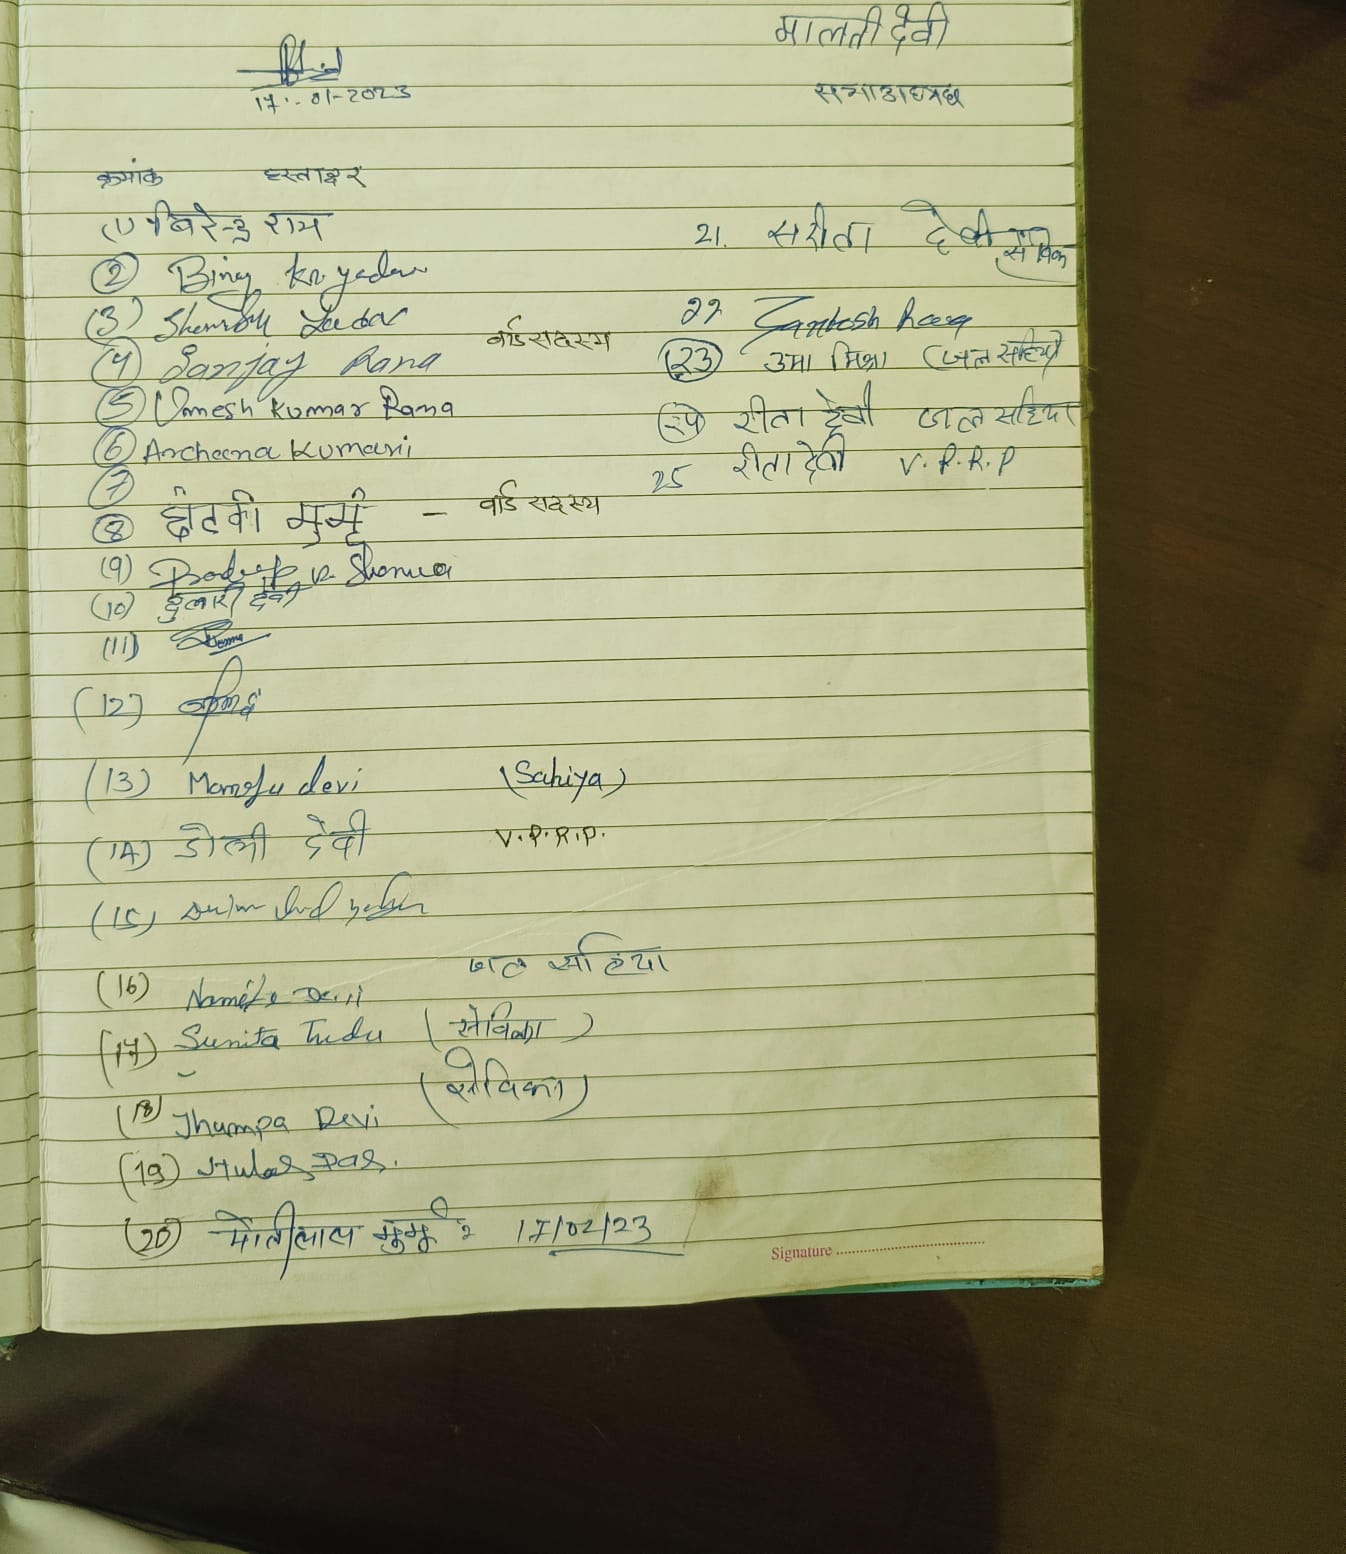 मालती देवी
17-01-2023
सभाअध्यक्ष
क्रमांक हस्ताक्षर
(1) बिरेन्द्र राम
(2) Binay kr yadav
(3) Shambhu Yadav
वार्ड सदस्य
(4) Sanjay Rana
(5) Umesh Kumar Rana
(6) Archana Kumari
(7)
(8) छोटकी मुर्मू - वार्ड सदस्य
(9) Pradeep kr. Sharma
(10) दुलारी देवी
(11)
(12)
(13) devi (Sahiya)
(14) डोली देवी V.P.R.P.
(15)
(16) Devi जल सहिया
(17) Sunita Tudu (सेविका)
(18) Jhumpa Devi (सेविका)
(19) Das.
(20) मोतीलाल मुर्मू 17/02/23
21. सरीता देवी सेविका
22 Santosh Rana
(23) उमा मिश्रा (जल सहिया)
(24) रीता देवी जल सहिया
25 रीता देवी V.P.R.P
Signature